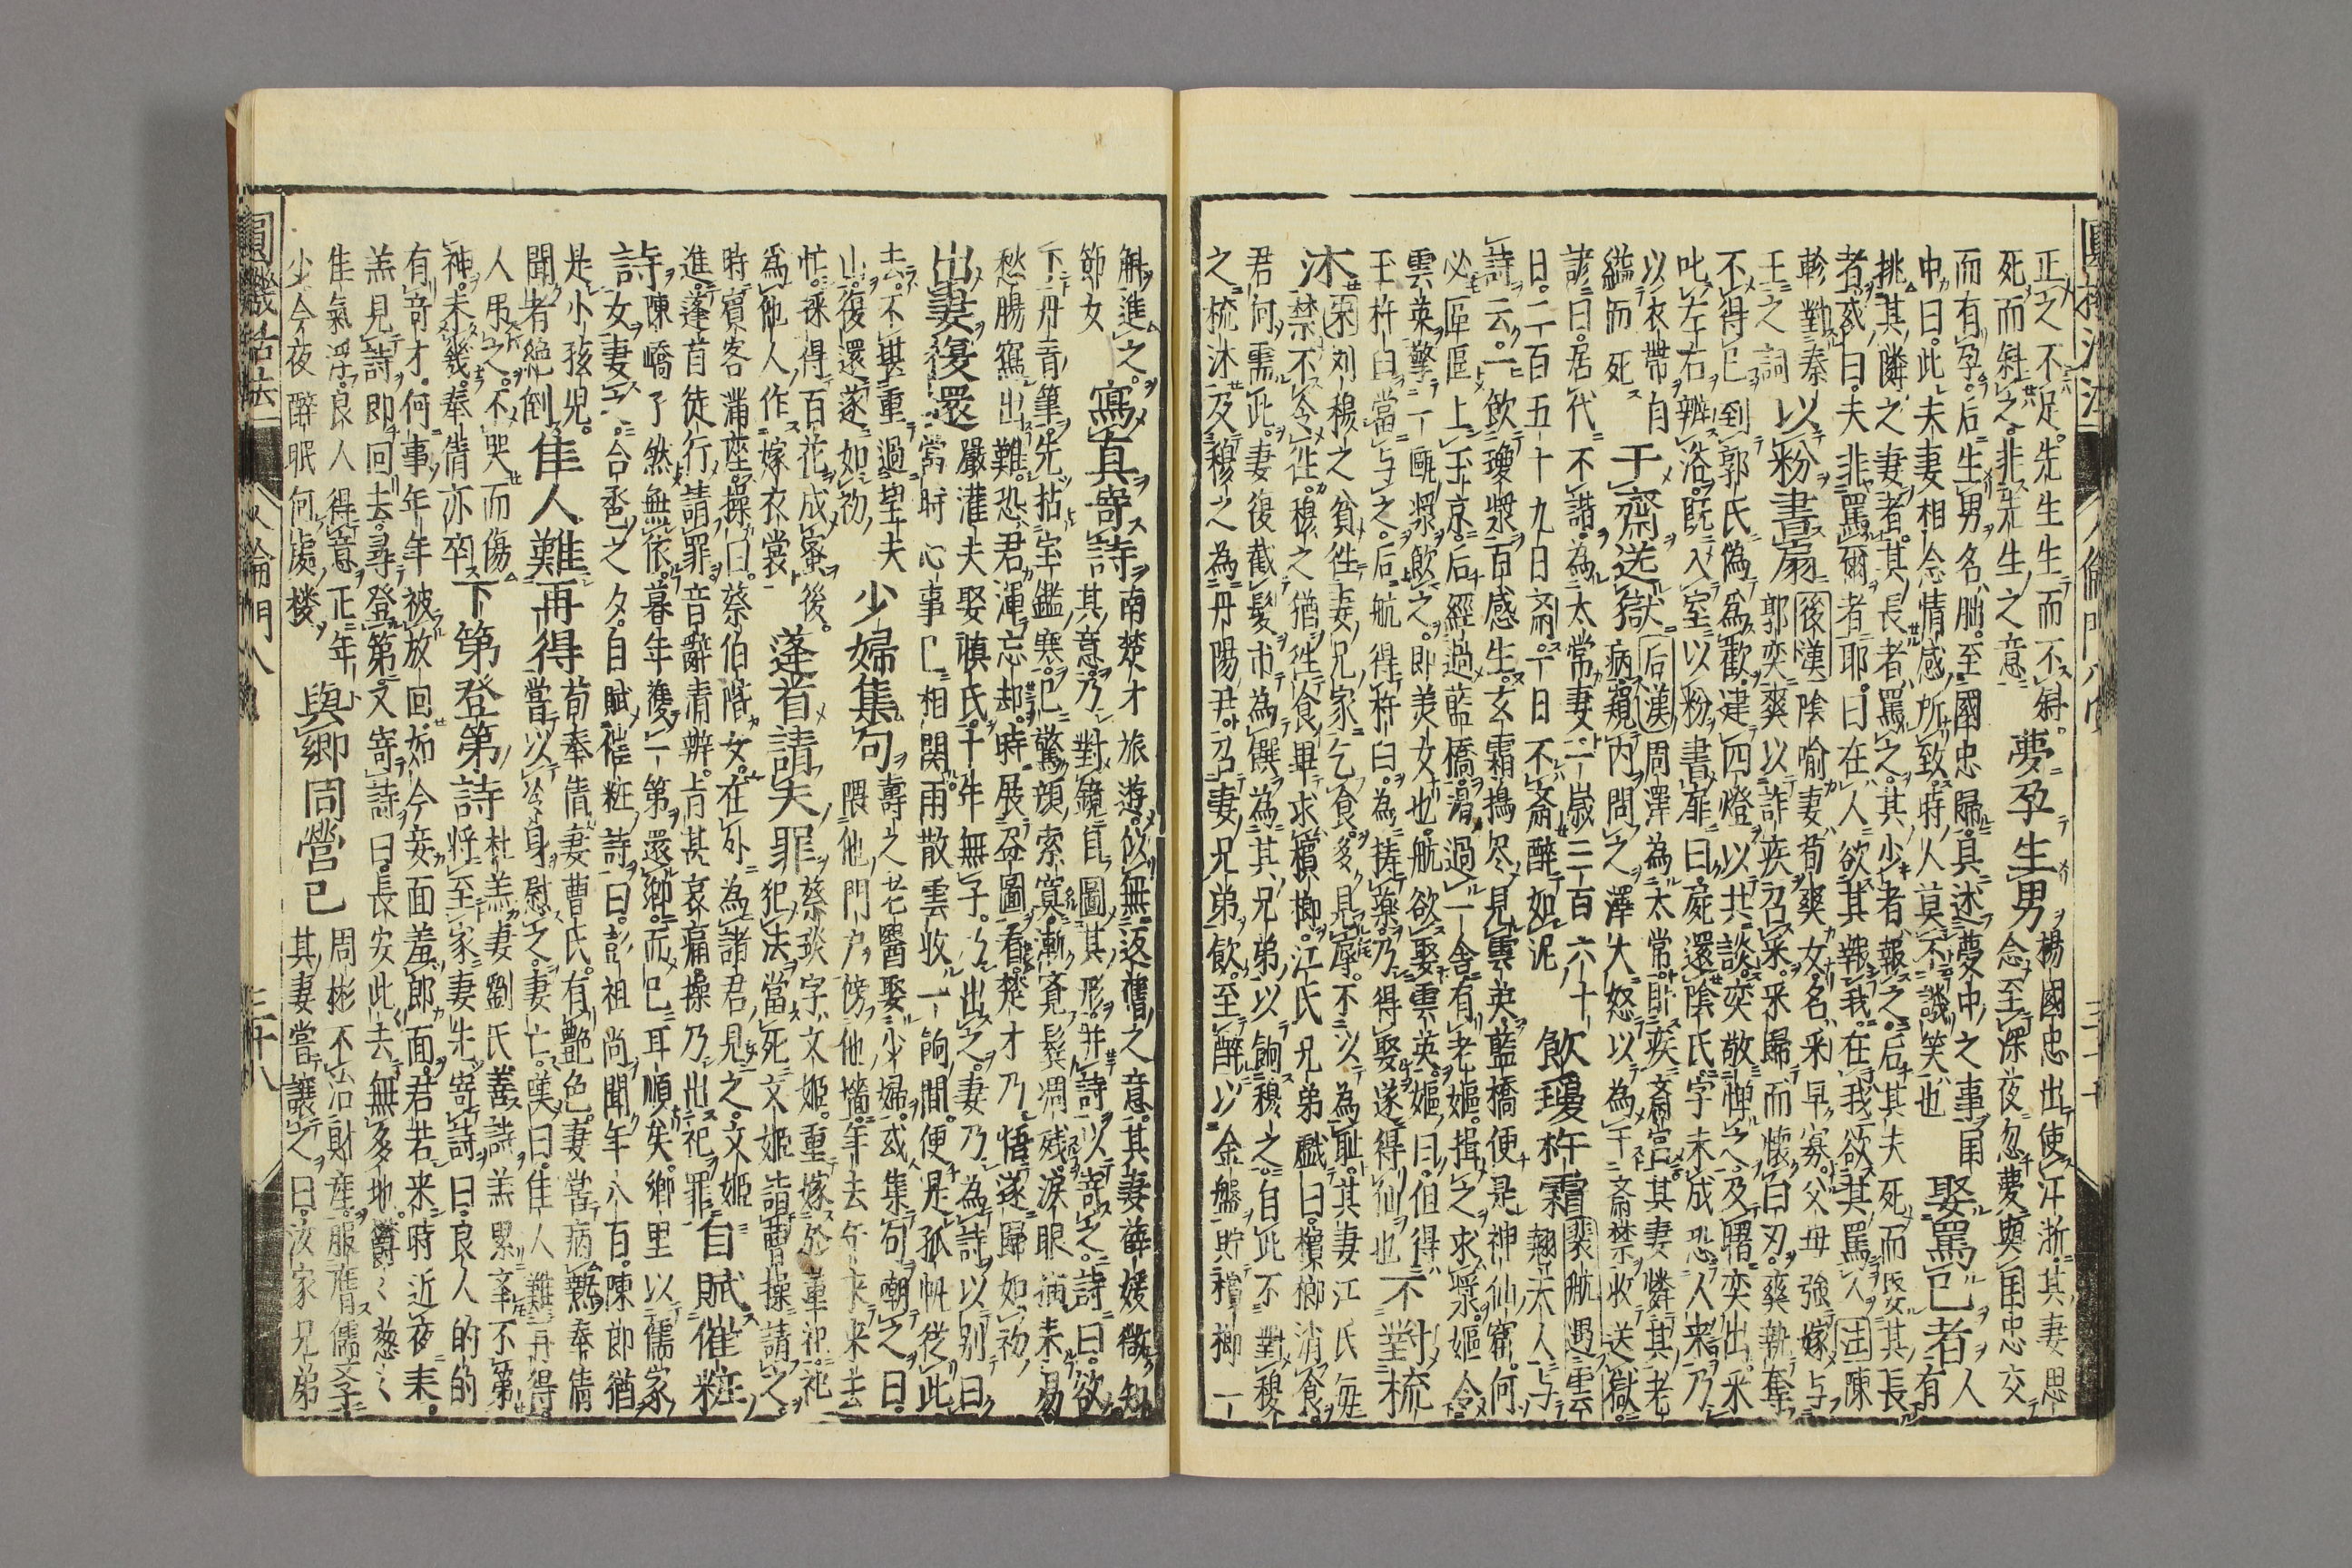 正之不足先生生而不斜夢孕生男楊國忠出使江浙其妻思
死而斜之非先生之意念至深夜忽夢與国忠交
而有孕后生男名朏至國忠歸具述夢中之事国娶罵已者人
中曰此夫妻相念情感所致時人莫不譏笑也有
挑其隣之妻者其長者罵之其少者報之后其夫死而娶其長
者或曰夫非罵爾者耶曰在人欲其報我在我欲其罵人
軫對秦王之詞以粉書扉後漢陰喻妻荀爽女名采早寡父母強嫁与
郭奕爽以詐疾召采采歸而懷白刃爽執奪
不得已到郭氏偽為歡建四燈以共談奕敬憚之及曙奕出采
叱左右辨浴既入室以粉書扉曰屍還陰氏字未成恐人来乃
以衣帶自縊而死干齋送獄后漢周澤為太常臥疾齋宮其妻憐其老
病窺内問之澤大怒以為干齋禁收送獄
諺曰居代不諧為太常妻一歲三百六十
日三百五十九日齋一日不齋醉如泥飲瓊杵霜裴航遇雲
翹夫人与
詩云一飲瓊漿百感生玄霜搗尽見雲英藍橋便是神仙窟何
必區區上玉京后經過藍橋渴過一舍有老嫗揖之求漿嫗令
雲英擎一甌漿飲之即美女也航欲娶雲英嫗曰但得
玉杵臼當与之后航得杵臼為搗藥乃得娶遂得仙也不對梳
沐宋刘穆之貧徃妻兄家乞食多見辱不以為耻其妻江氏每
禁不令徃穆之猶徃食畢求檳榔江氏兄弟戲曰檳榔消食
君何需此妻復截髮市為饌為其兄弟以餉穆之自此不對穆
之梳沐及穆之為丹陽尹召妻兄弟飲至醉以金盤貯檳榔一
斛進之寫真寄詩南楚才旅遊似無返舊之意其妻薛媛微知
其意乃對鏡自圖其形并詩以寄之詩曰欲
下丹青筆先拈宝鑑寒已驚顔索寞漸覚鬂凋残涙眼描未易
愁腸寫出難恐君渾忘却時展畫圖看楚才乃悟遂歸如初
出妻復還嚴灌夫娶慎氏十年無子乃出之妻乃為詩以别曰
當時心事已相関雨散雲收一餉間便是孤帆從此
去不堪重過望夫山復還遂如初少婦集句壽之老醫娶少婦或集句嘲之曰
隈他門户傍他墻年去年来来去
忙採得百花成蜜後為他人作嫁衣裳蓬首請夫罪蔡琰字文姬重嫁於董祀祀
犯法當死文姬詣曹操請之
時賓客滿座操曰蔡伯喈女在外為諸君見之文姬
進蓬首徒行請罪音辭清辨旨甚哀痛操乃出祀罪自賦催粧
詩陳嶠了然無依暮年獲一第還鄉而已耳順矣鄉里以儒家
女妻之合巹之夕自賦催粧詩曰彭祖尚聞年八百陳郎猶
是小孩児聞者絶倒佳人難再得荀奉倩妻曹氏有艶色妻嘗病熱奉倩
當以冷身慰之妻亡嘆曰佳人難再得
人吊之不哭而傷神未幾奉倩亦卒下第登第詩杜羔妻劉氏善詩羔累舉不第
將至家妻先寄詩曰良人的的
有奇才何事年年被放回如今妾面羞郎面君若来時近夜来
羔見詩即回去尋登第又寄詩曰長安此去無多地鬱々葱々
佳氣浮良人得意正年少今夜醉眠何處楼與鄉同營已周彬不治財産服膺儒学
其妻嘗讓之曰汝家兄弟